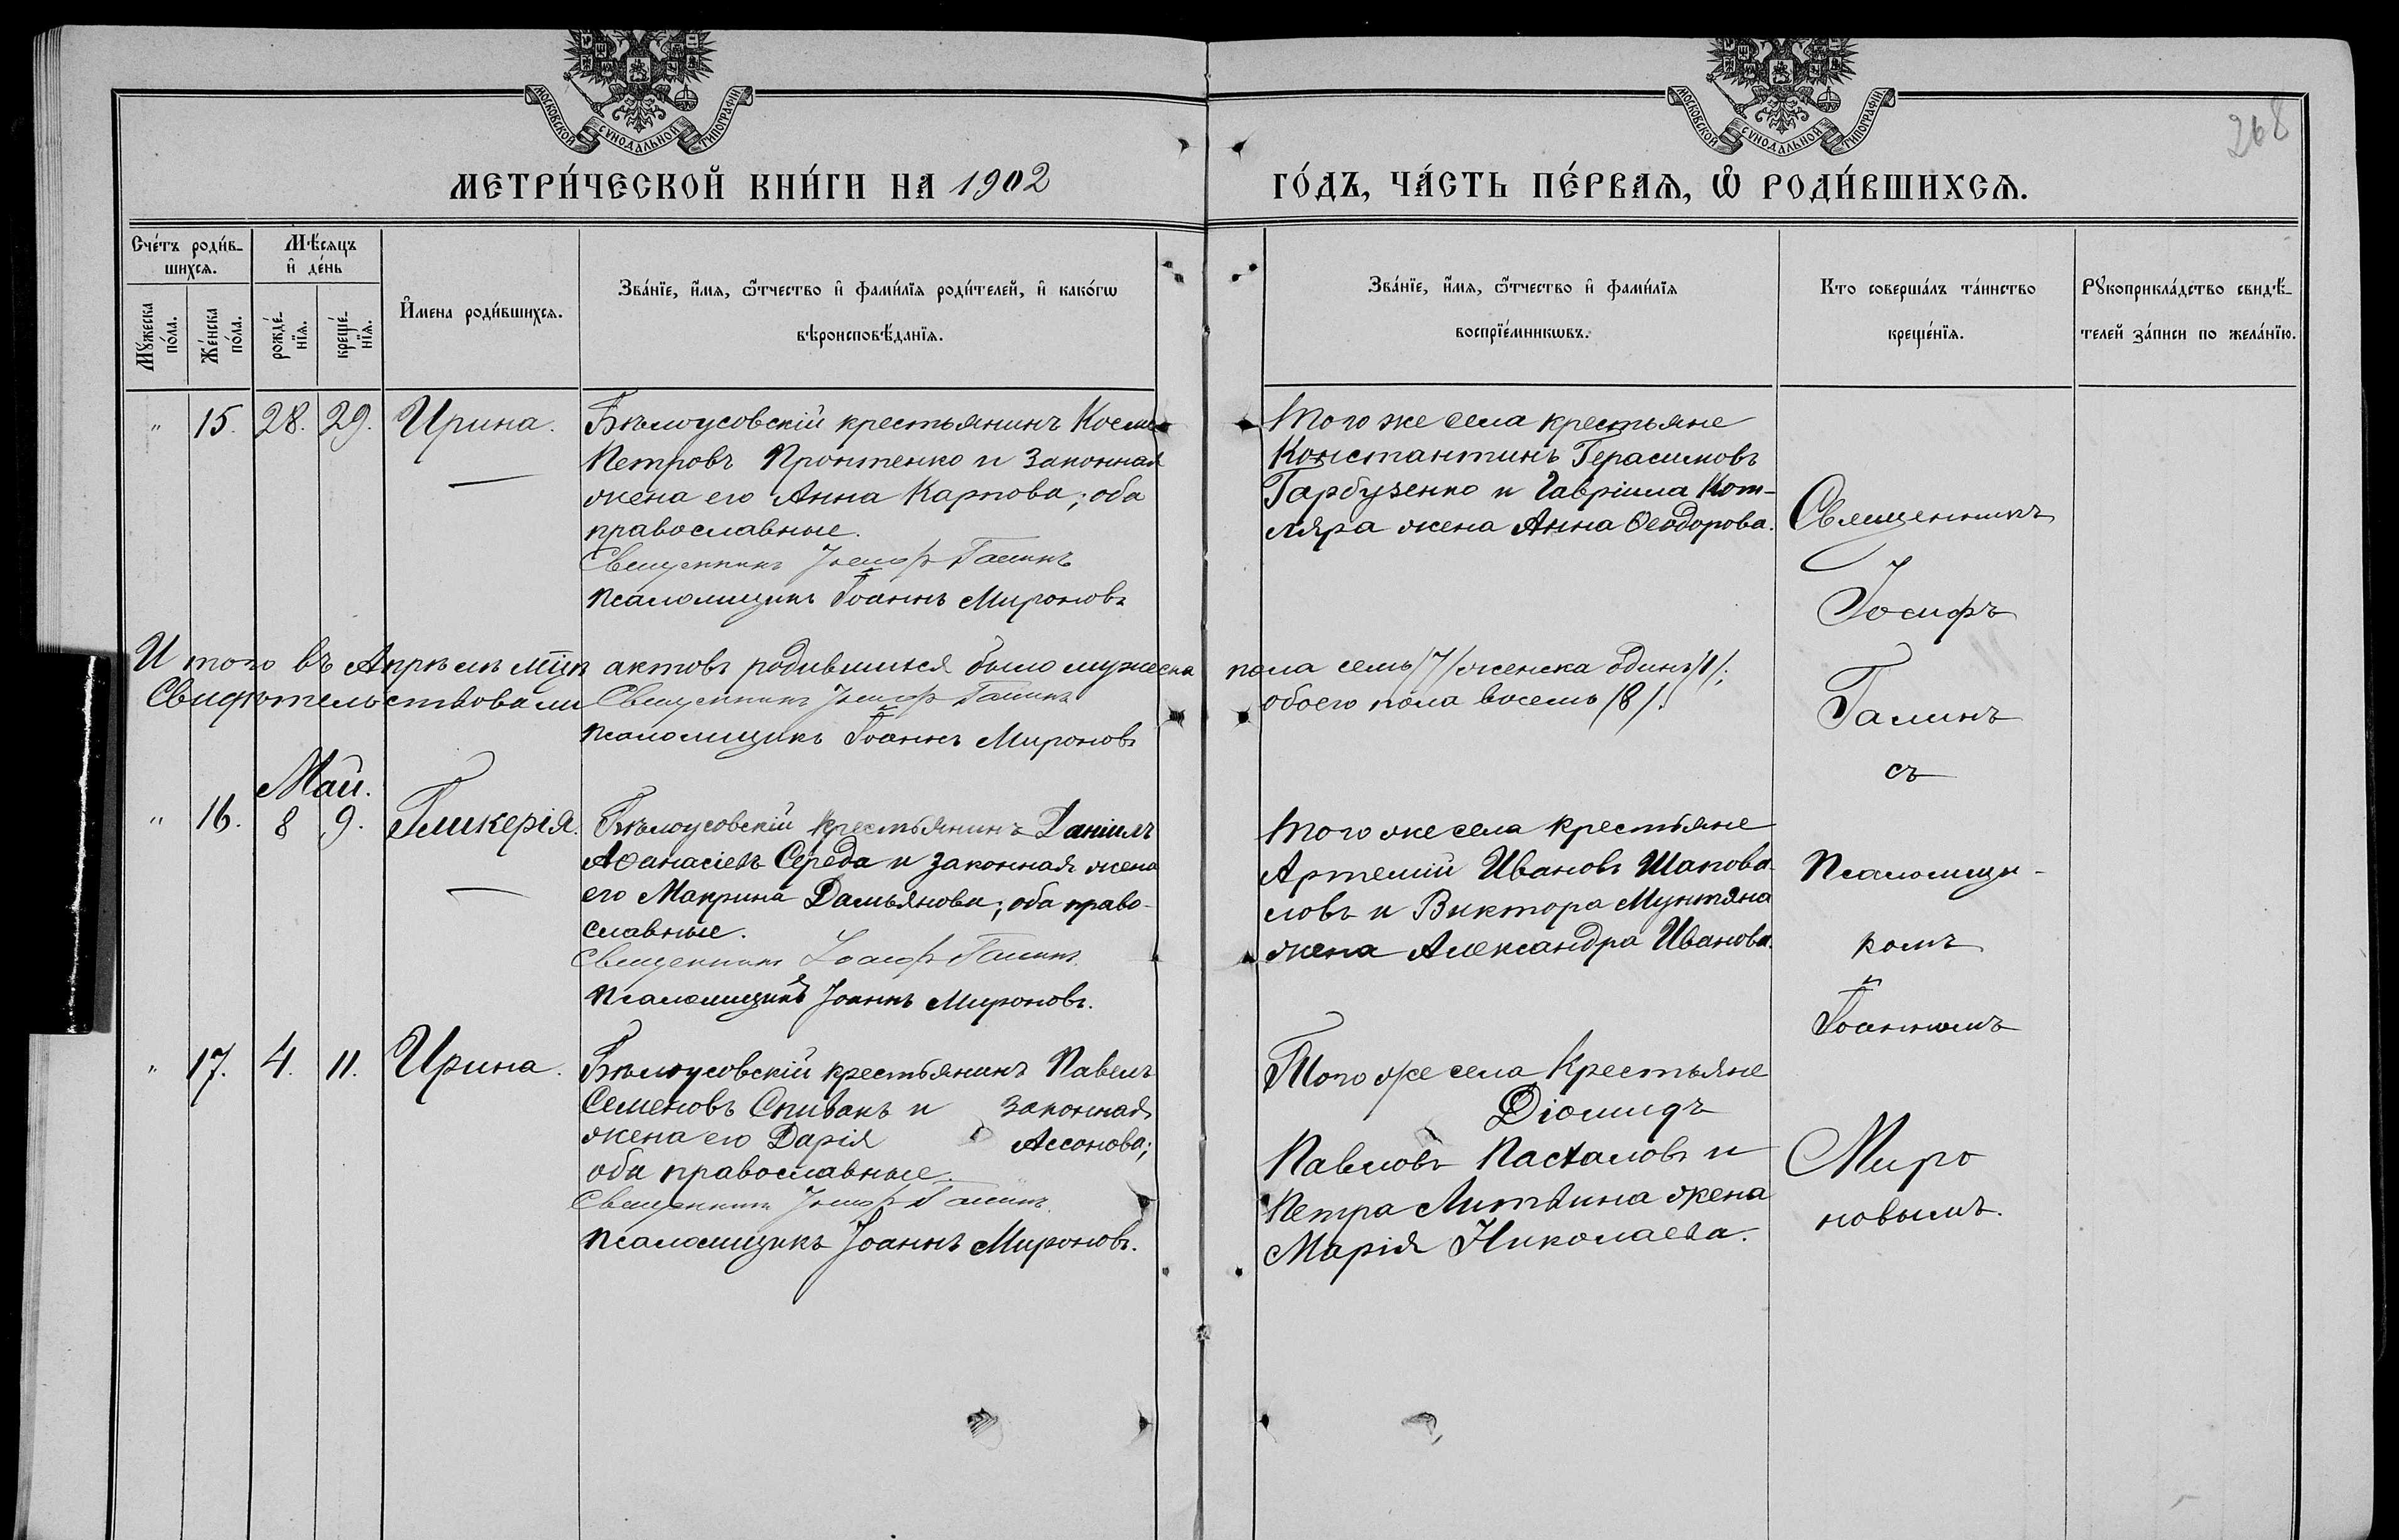 МОСКОВСКОЙ СѴНОДАЛЬНОЙ ТИПОГРАФІИ
МОСКОВСКОЙ СѴНОДАЛЬНОЙ ТИПОГРАФІИ
268
МЕТРИ́ЧЕСКОЙ КНИ́ГИ НА 1902
ГО́ДЪ, ЧА́СТЬ ПЕ́РВАѦ, Ѽ РОДИ́ВШИХСѦ.
Сче́тъ роди́в-
шихсѧ.
Мꙋ́жеска по́ла.
Же́нска по́ла.
Мѣ́сѧцъ
и҆ де́нь
рожде́-нїѧ.
креще́-нїѧ.
И҆мена роди́вшихсѧ.
Зва́нїе, и҆́мѧ, ѻ҆́тчество и҆ фами́лїѧ роди́телей, и҆ како́гѡ
вѣроисповѣ́данїѧ.
Зва́нїе, и҆́мѧ, ѻ҆́тчество и҆ фами́лїѧ
воспрїе́мникѡвъ.
Кто соверша́лъ та́инство
креще́нїѧ.
Рꙋкоприкла́дство свидѣ́-
телей за́писи по жела́нїю.
" 15. 28. 29. Ирина.
Бѣлоусовскій крестьянинъ Косма
Петровъ Пронтенко и законная
жена его Анна Карпова; оба
православные.
Священникъ Іосифъ Галинъ
Псаломщикъ Іоаннъ Мироновъ
Того же села крестьяне
Константинъ Герасимовъ
Гарбузенко и Гавріила Кот-
ляра жена Анна Ѳеодорова.
И того въ Апрѣлѣ мцѣ актовъ родившихся было мужеска пола семь /7/ женска одинъ /1/;
Свидѣтельствовали Священникъ Іосифъ Галинъ обоего пола восемь /8/.
Псаломщикъ Іоаннъ Мироновъ
Май.
" 16. 8 9. Гликерія.
Бѣлоусовскій крестьянинъ Даніилъ
Аѳанасіевъ Середа и законная жена
его Макрина Дамьянова; оба право-
славные.
Священникъ Іосифъ Галинъ
Псаломщикъ Іоаннъ Мироновъ.
Того же села крестьяне
Артемій Ивановъ Шапова-
ловъ и Виктора Мунтяна
жена Александра Иванова.
" 17. 4. 11. Ирина.
Бѣлоусовскій крестьянинъ Павелъ
Семеновъ Спивакъ и законная
жена его Дарія Ассонова;
оба православные.
Священникъ Іосифъ Галинъ
Псаломщикъ Іоаннъ Мироновъ.
Того же села крестьяне
Діомидъ
Павловъ Пасталовъ и
Петра Литвина жена
Марія Николаева.
Священникъ
Іосифъ
Галинъ
съ
Псаломщи-
комъ
Іоанномъ
Миро
новымъ.